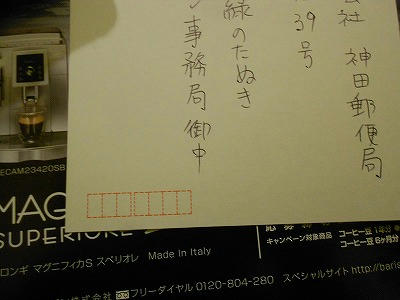 会社 神田郵便局
39号
緑のたぬき
事務局 御中
ECAM23420SB
MAG
SUPERIORE
ロンギ マグニフィカS スペリオレ Made In Italy
キャンペーン対象商品
コーヒー豆1年分
コーヒー豆6ヶ月分
フリーダイヤル 0120-804-280 スペシャルサイト http://baris